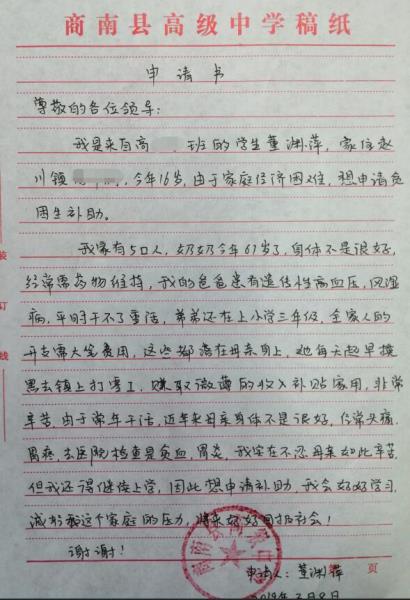 商南县高级中学稿纸
申请书
尊敬的各位领导：
我是来自高 班的学生董渊萍，家住赵
川镇 ，今年16岁，由于家庭经济困难，想申请贫
困生补助。
我家有5口人，奶奶今年67岁了，身体不是很好，
经常需药物维持，我的爸爸患有遗传性高血压，风湿
病，平时干不了重活，弟弟还在上小学三年级，全家人的
开支需大笔费用，这些都落在母亲身上，她每天起早摸
黑去镇上打零工，赚取微薄的收入补贴家用，非常
辛苦，由于常年干活，近年来母亲身体不是很好，经常头痛，
胃疼，去医院检查是贫血，胃炎，我实在不忍母亲如此辛苦，
但我还得继续上学，因此想申请补助，我会好好学习，
减轻我这个家庭的压力，将来好好回报社会！
谢谢！
页
申请人：董渊萍
2019年3月8日
装
订
线
商南县